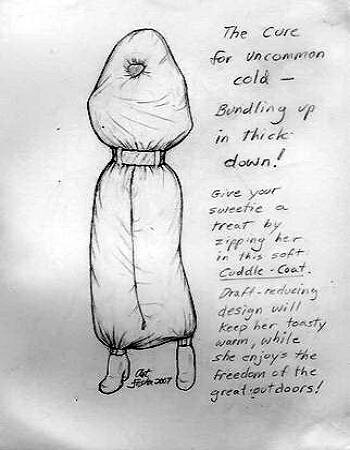 The Cure
for uncommon
cold —
Bundling up
in thick
down!
Give your
sweetie a
treat by
zipping her
in this soft
Cuddle-Coat.
Draft-reducing
design will
keep her toasty
warm, while
she enjoys the
freedom of the
great outdoors!
2007